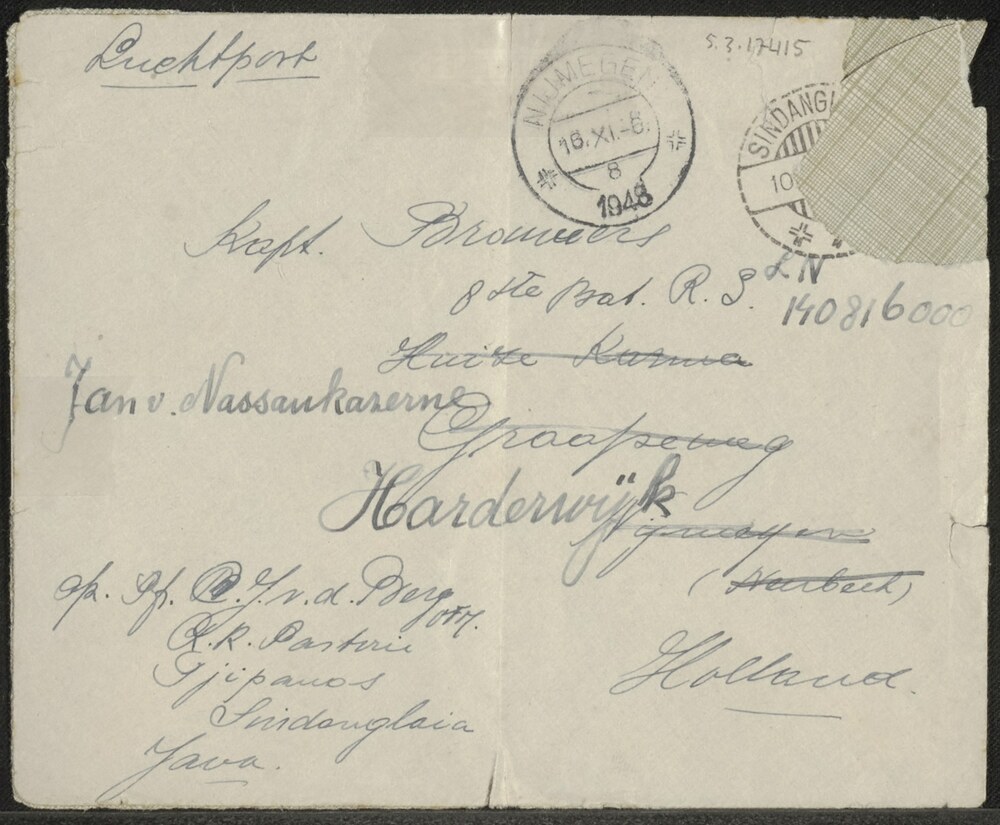 Luchtpost
5.3.17415
NIJMEGEN
16.XI.-8.
8
1948
SINDANGL
10
Kapt. Brouwers
8ste Bat. R. S.
LN
140816000
Huize Kurma
Jan v. Nassaukazerne
Graafseweg
Harderwijk
Nijmegen
(Neerbech)
Holland.
v. d. Berg
OFM.
R.k. Pastorie
Tjipanas
Sindanglaia
Java.